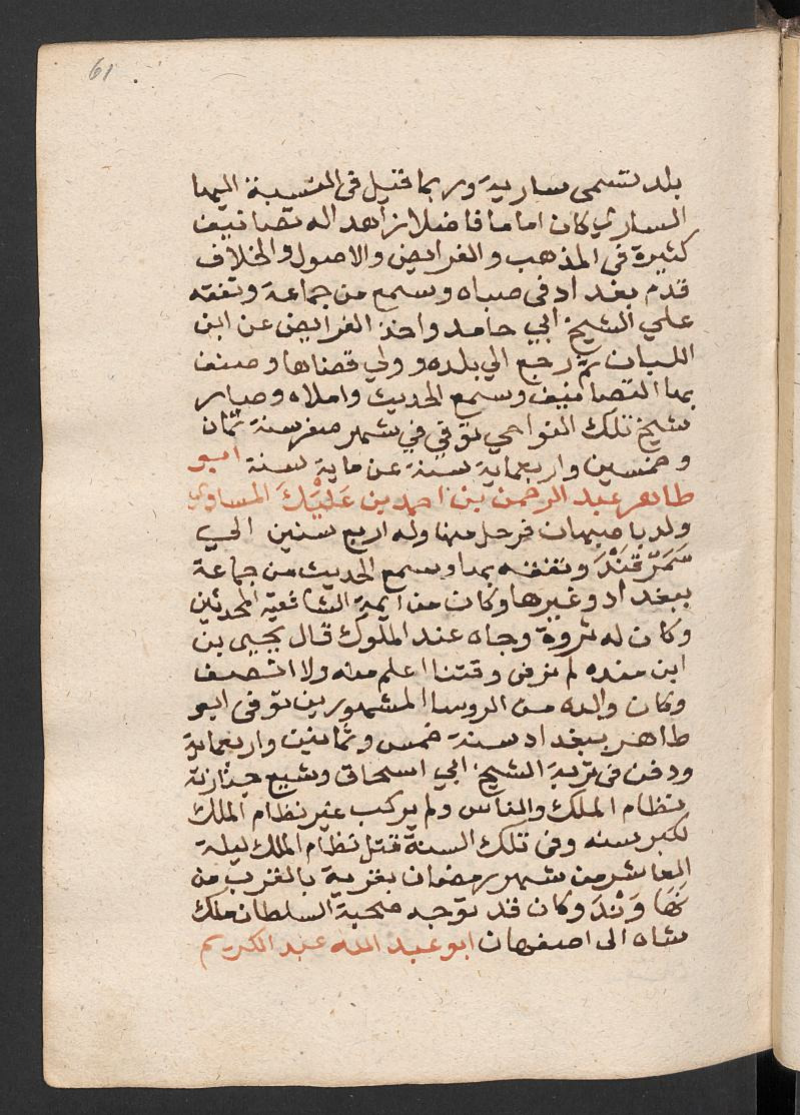 61
بلد تسمى سارية وربما قيل في النسبة اليها
الساري كان اماما فاضلا زاهدا له تصانيف
كثيرة في المذهب والفرايض والاصول والخلاف
قدم بغداد في صباه وسمع من جماعة وتفقه
علي الشيخ ابي حامد واخذ الفرايض عن ابن
اللبان ثم رجع الي بلده وولي قضاها وصنف
بها التصانيف وسمع الحديث واملاه وصار
شيخ تلك النواحي توفي في شهر صفر سنة ثمان
وخمسين واربعماية سنة عن ماية سنة ابو
طاهر عبد الرحمن بن احمد بن عَليَّكَ الساوي
ولد باصبهان فرحل منها وله اربع سنين الي
سَمَرْقَنْدَ وتفقه بها وسمع الحديث من جماعة
ببغداد وغيرها وكان من ايمة الشافعية المحدثين
وكان له ثروة وجاه عند الملوك قال يحيى بن
ابن منده لم نر في وقتنا اعلم منه ولا انصف
وكان والده من الروسا المشهورين توفى ابو
طاهر ببغداد سنة خمس وثمانين واربعماية
ودفن في تربة الشيخ ابي اسحاق وشيع جنازته
نظام الملك والناس ولم يركب غير نظام الملك
لكبر سنه وفى تلك السنة قتل نظام الملك ليلة
العاشر من شهر رمضان بقرية بالقرب من
نَهَاوَنْدَ وكان قد توجه صحبة السلطان ملك
شاه الى اصفهان ابو عبد الله عبد الكريم